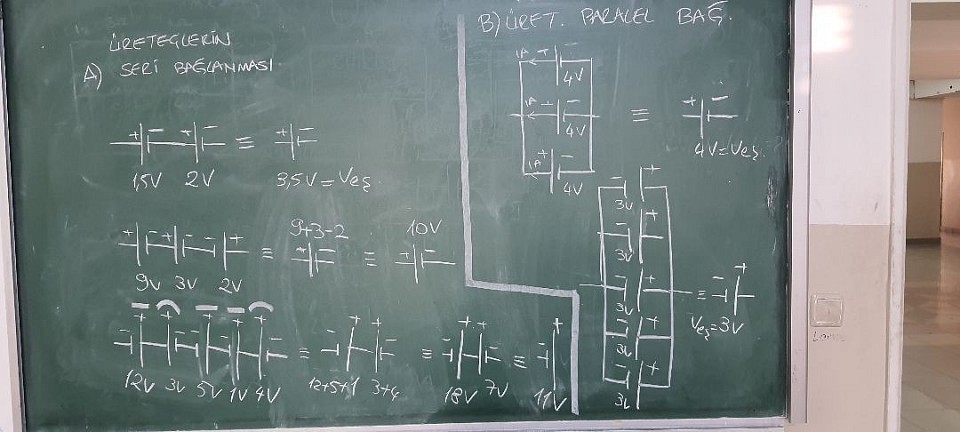 ÜRETEÇLERİN
A) SERİ BAĞLANMASI
+ - + - ≡ + -
1,5V 2V 3,5V = Veş
9+3-2 10V
+ - + - - + ≡ + - ≡ + -
9V 3V 2V
- + + - - + - + + - ≡ - + + - ≡ - + + - ≡ - +
12V 3V 5V 1V 4V 12+5+1 3+4 18V 7V 11V
B) ÜRET. PARALEL BAĞ.
1A + -
4V
1A + - ≡ + -
4V 4V = Veş
1A + -
4V
- +
3V
- +
3V
- + ≡ - +
3V Veş = 3V
- +
3V
- +
3V